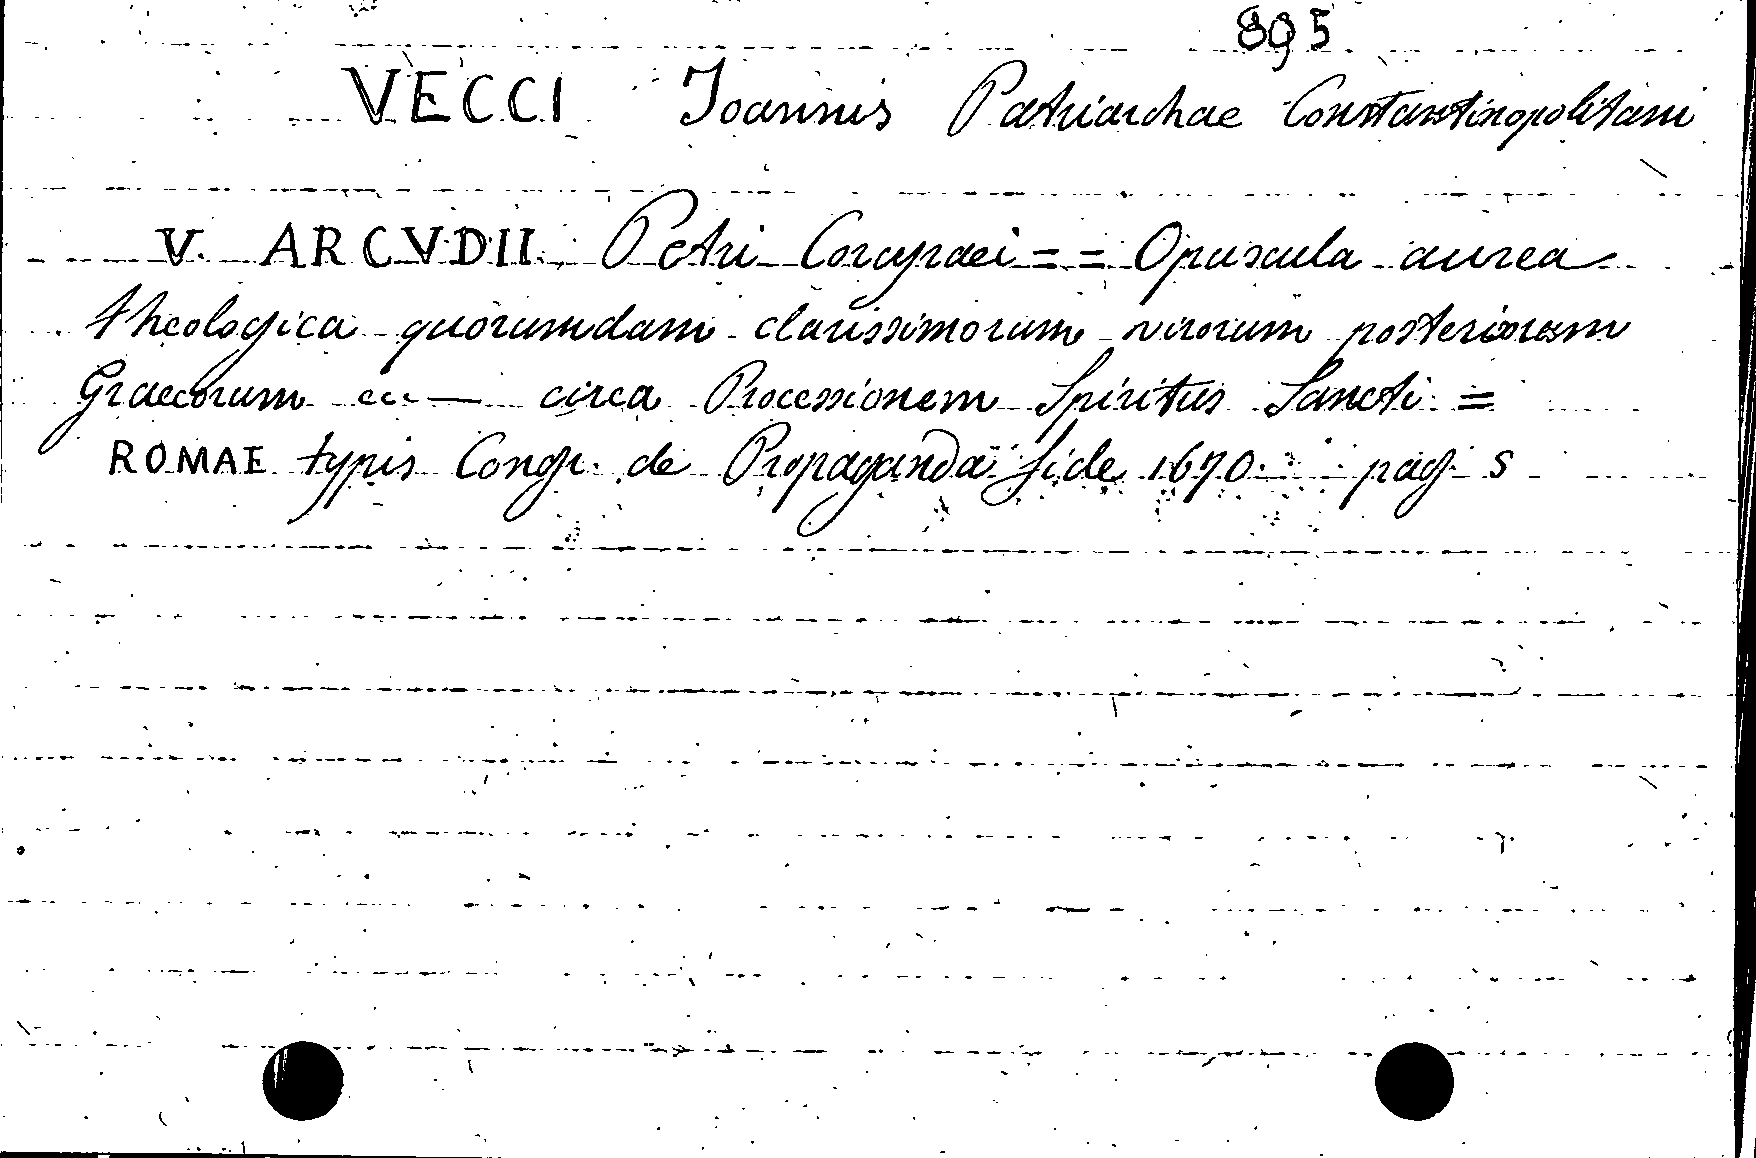 895
VECCI Joannis Patriarchae Constantinopolitani
V. ARCVDII Petri Corcyraei = = Opuscula aurea
theologica quorumdam clarissimorum virorum posteriorum
Graecorum ecc — circa Processionem Spiritus Sancti =
ROMAE typis Congr. de Propaganda fide 1670. pag. s